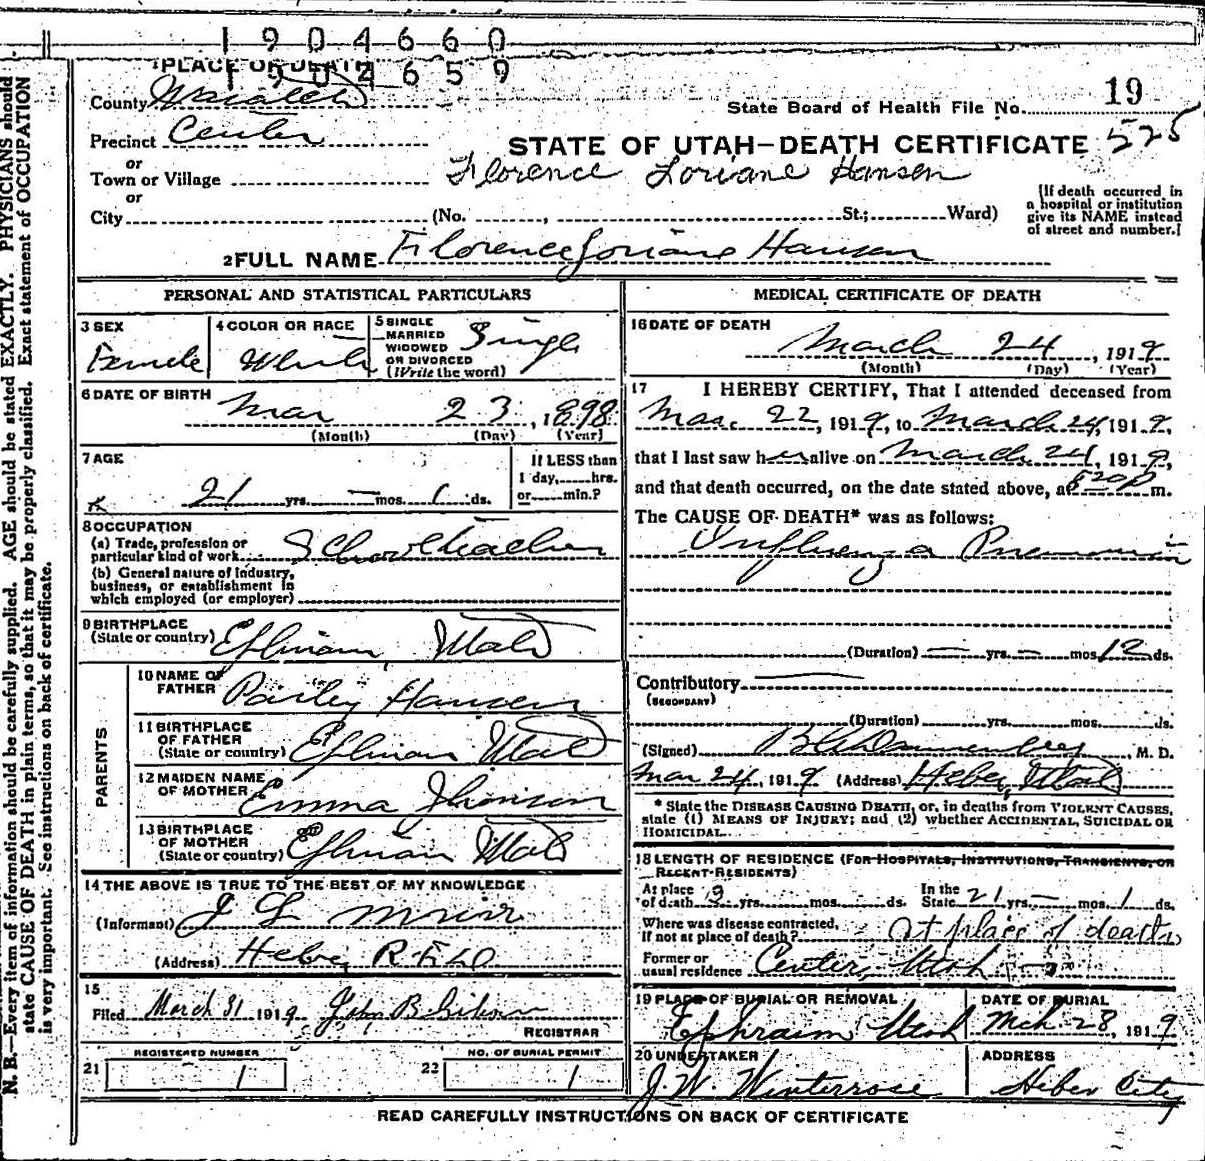 1904660
1904659
1 PLACE OF DEATH
County Wasatch
State Board of Health File No. 19
Precinct Center
STATE OF UTAH—DEATH CERTIFICATE 525
or
Town or Village
Florence Loriane Hansen
or
City (No. , St.; Ward)
(If death occurred in a hospital or institution give its NAME instead of street and number.)
2 FULL NAME Florence Loriane Hansen
PERSONAL AND STATISTICAL PARTICULARS
3 SEX
Female
4 COLOR OR RACE
White
5 SINGLE
MARRIED
WIDOWED
OR DIVORCED
(Write the word)
Single
6 DATE OF BIRTH
Mar 23, 1898
(Month) (Day) (Year)
7 AGE
21 yrs. — mos. 1 ds.
If LESS than
1 day, hrs.
or min.?
8 OCCUPATION
(a) Trade, profession or
particular kind of work Schoolteacher
(b) General nature of industry,
business, or establishment in
which employed (or employer)
9 BIRTHPLACE
(State or country) Ephriam, Utah
PARENTS
10 NAME OF
FATHER Parley Hansen
11 BIRTHPLACE
OF FATHER
(State or country) Ephriam Utah
12 MAIDEN NAME
OF MOTHER Emma
13 BIRTHPLACE
OF MOTHER
(State or country) Ephriam Utah
14 THE ABOVE IS TRUE TO THE BEST OF MY KNOWLEDGE
(Informant) J
(Address) Heber R.F.D.
15
Filed March 31 1919 John B
REGISTRAR
REGISTERED NUMBER
21 1
NO. OF BURIAL PERMIT
22 1
MEDICAL CERTIFICATE OF DEATH
16 DATE OF DEATH
March 24, 1919
(Month) (Day) (Year)
17 I HEREBY CERTIFY, That I attended deceased from
Mar. 22, 1919, to March 24, 1919,
that I last saw her alive on March 24, 1919,
and that death occurred, on the date stated above, at 520 P m.
The CAUSE OF DEATH* was as follows:
Influenza Pneumonia
(Duration) — yrs. — mos. 12 ds.
Contributory
(SECONDARY)
(Duration) yrs. mos. ds.
(Signed) , M. D.
Mar 24, 1919 (Address) Heber, Utah
* State the DISEASE CAUSING DEATH, or, in deaths from VIOLENT CAUSES,
state (1) MEANS OF INJURY; and (2) whether ACCIDENTAL, SUICIDAL OR
HOMICIDAL.
18 LENGTH OF RESIDENCE (FOR HOSPITALS, INSTITUTIONS, TRANSIENTS, OR
RECENT RESIDENTS)
At place
of death 9 yrs. mos. ds.
In the
State 21 yrs. — mos. 1 ds.
Where was disease contracted,
If not at place of death? At place of death
Former or
usual residence Center, Utah
19 PLACE OF BURIAL OR REMOVAL
Ephraim Utah
DATE OF BURIAL
Mch 28, 1919
20 UNDERTAKER
J. W. Winterrose
ADDRESS
Heber City
READ CAREFULLY INSTRUCTIONS ON BACK OF CERTIFICATE
N. B.—Every item of information should be carefully supplied. AGE should be stated EXACTLY. PHYSICIANS should
state CAUSE OF DEATH in plain terms, so that it may be properly classified. Exact statement of OCCUPATION
is very important. See instructions on back of certificate.